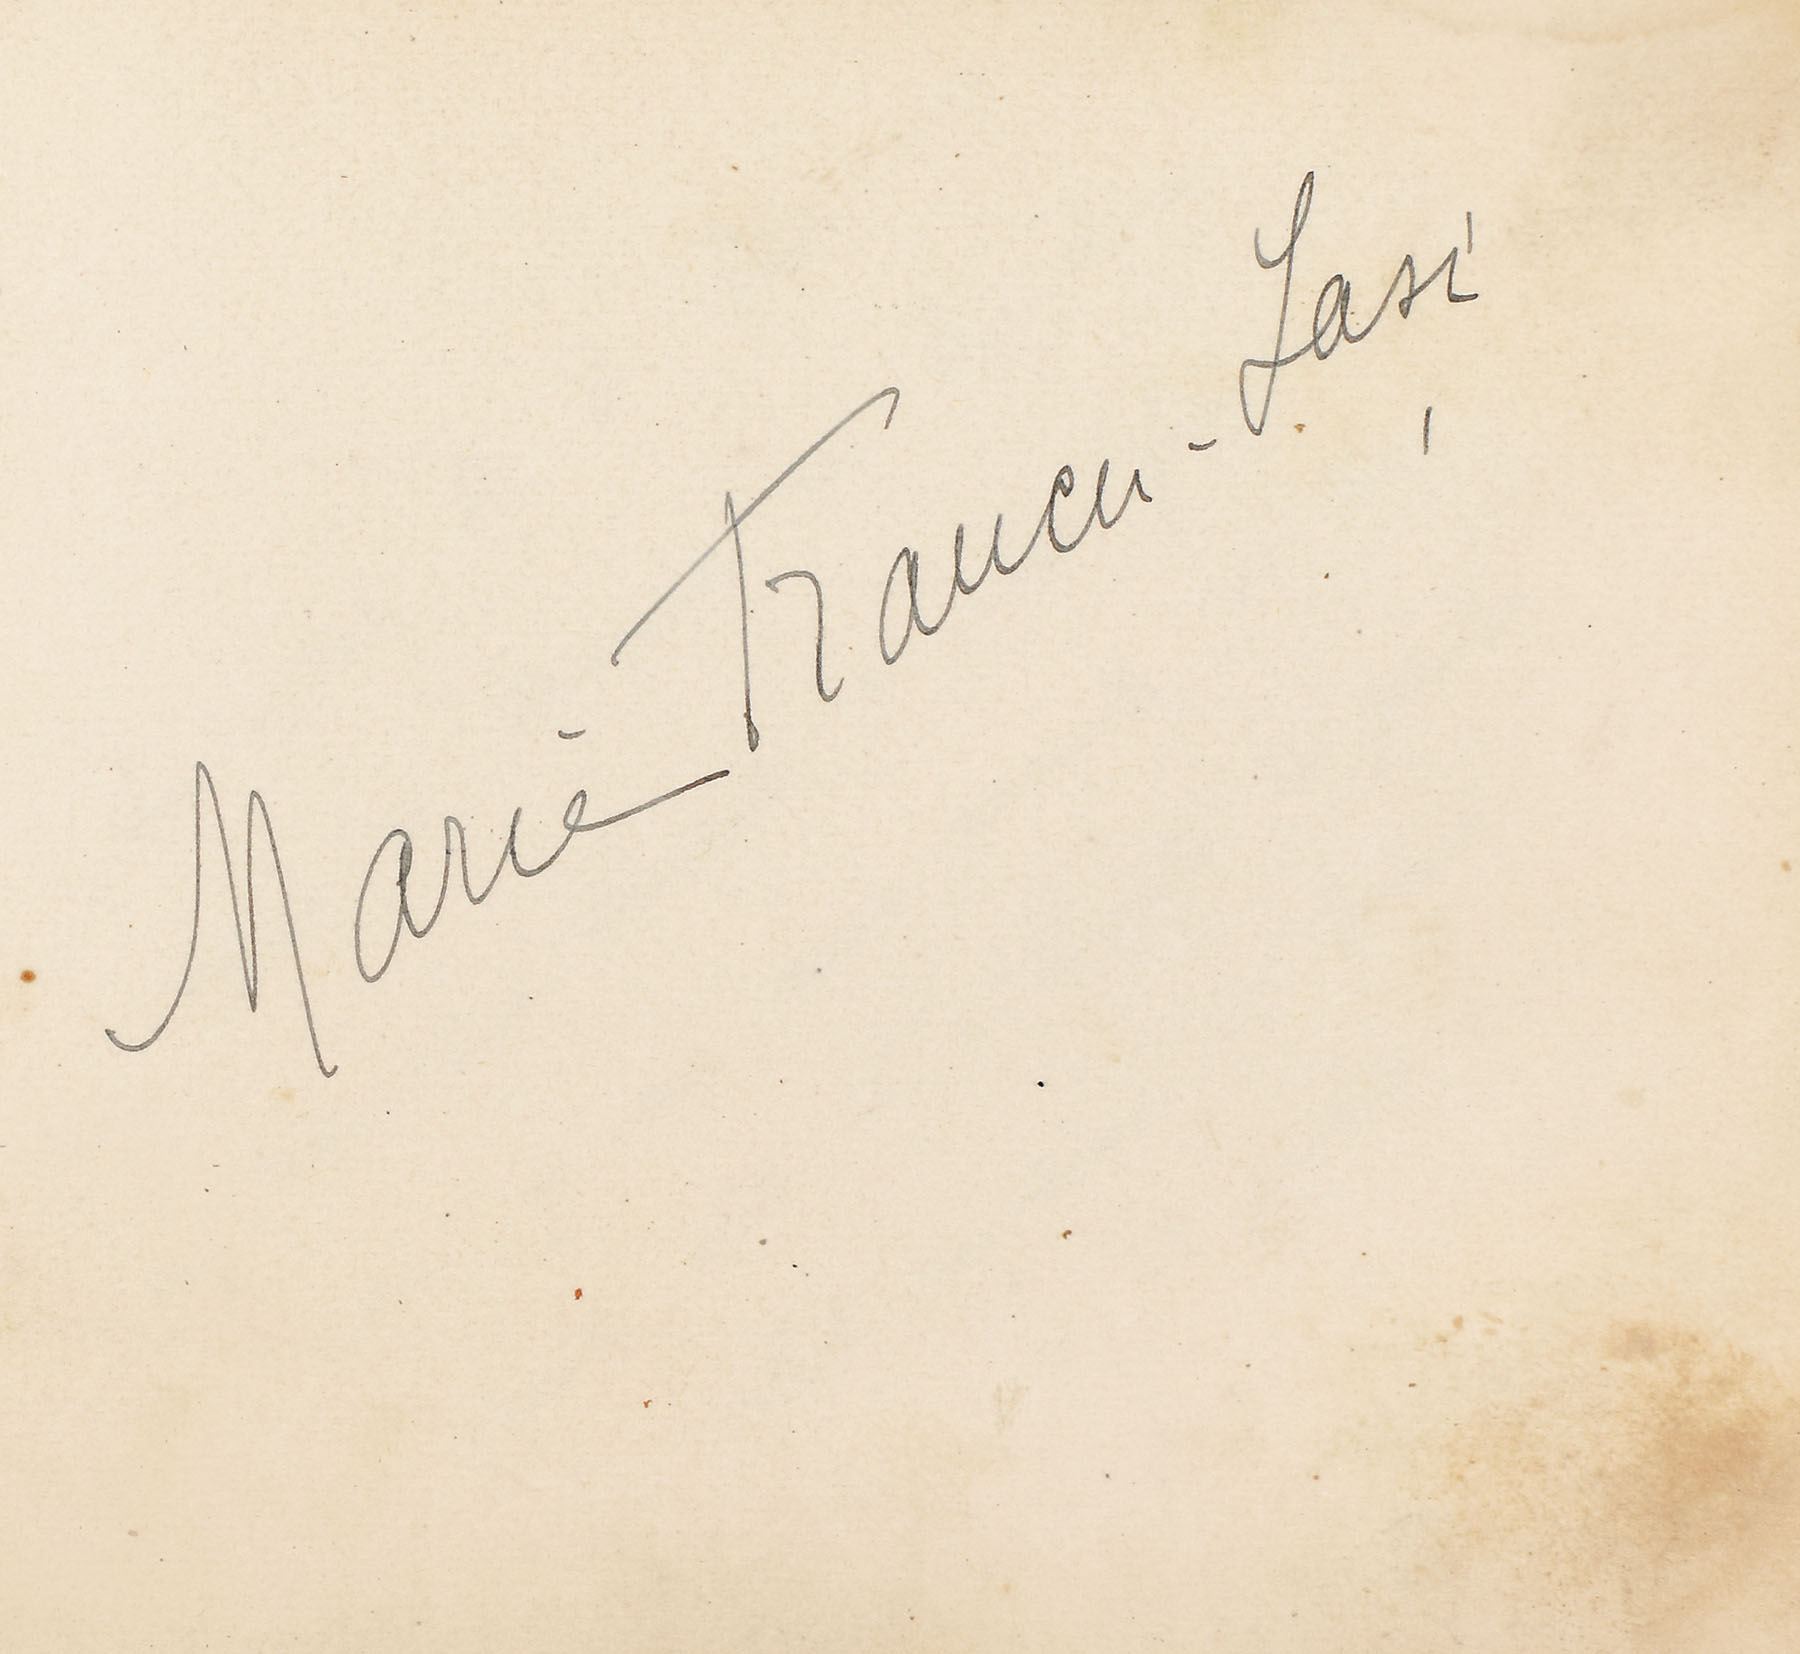 Marie Trancu-Iași